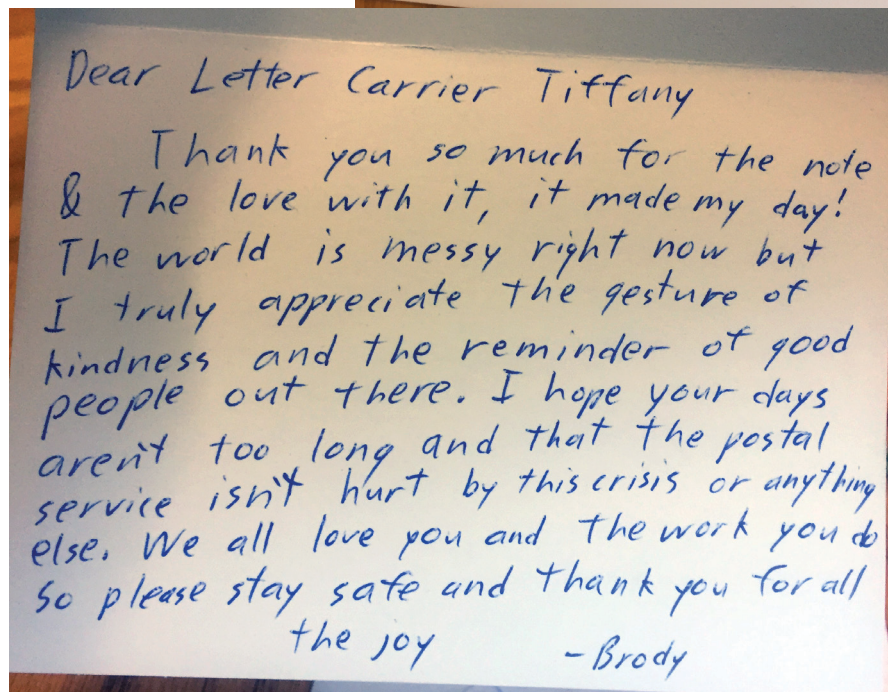 Dear Letter Carrier Tiffany
Thank you so much for the note
& the love with it, it made my day!
The world is messy right now but
I truly appreciate the gesture of
kindness and the reminder of good
people out there. I hope your days
aren't too long and that the postal
service isn't hurt by this crisis or anything
else. We all love you and the work you do
So please stay safe and thank you for all
the joy
-Brody